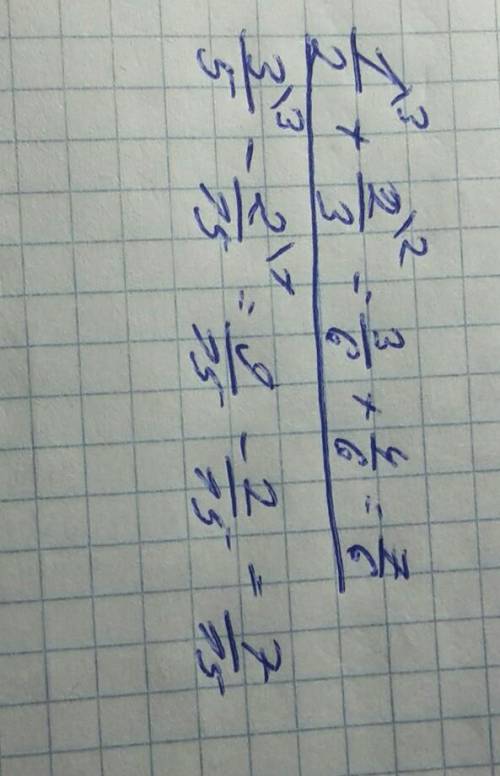 1\3/2 + 2\2/3 = 3/6 + 4/6 = 7/6
3\3/5 - 2\1/15 = 9/15 - 2/15 = 7/15